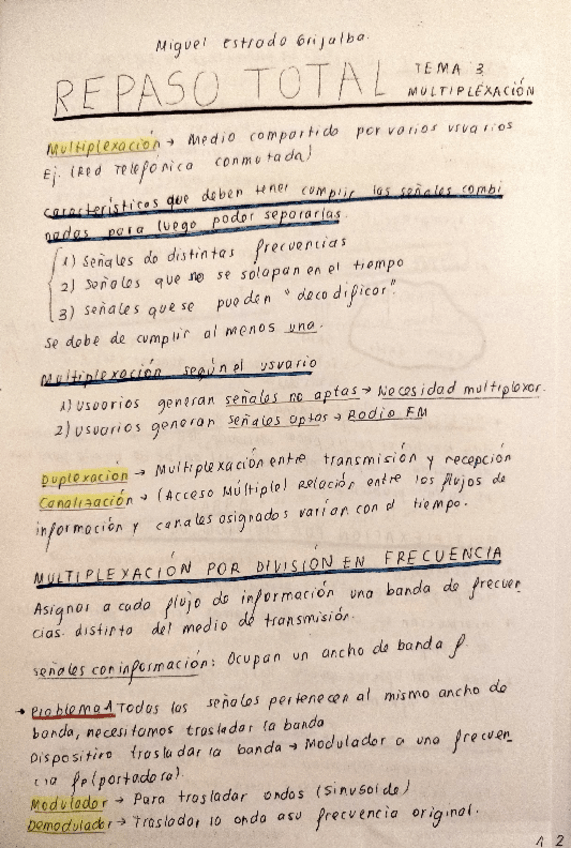 Miguel Estrada Grijalba.
REPASO TOTAL TEMA 3
MULTIPLEXACIÓN
Multiplexación → Medio compartido por varios usuarios
Ej. (Red Telefónica conmutada)
características que deben tener cumplir las señales combi
nadas para luego poder separarlas.
1) Señales de distintas frecuencias
2) Señales que no se solapan en el tiempo
3) Señales que se pueden "decodificar".
Se debe de cumplir al menos una.
Multiplexación según el usuario
1) Usuarios generan señales no aptas → Necesidad multiplexor.
2) Usuarios generan señales aptas → Radio FM
Duplexación → Multiplexación entre transmisión y recepción
Canalización → (Acceso Múltiple) Relación entre los flujos de
información y canales asignados varían con el tiempo.
MULTIPLEXACIÓN POR DIVISIÓN EN FRECUENCIA
Asignar a cada flujo de información una banda de frecuen_
cias distinta del medio de transmisión.
señales con información: Ocupan un ancho de banda f.
→ Problema 1 Todas las señales pertenecen al mismo ancho de
banda, necesitamos trasladar la banda
Dispositivo trasladar la banda → Modulador a una frecuen_
cia fp (portadora).
Modulador → Para trasladar ondas (Sinusoide)
Demodulador → Trasladar la onda a su frecuencia original.
1 2